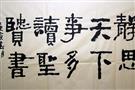 靜思
天下
事多
讀聖
賢書